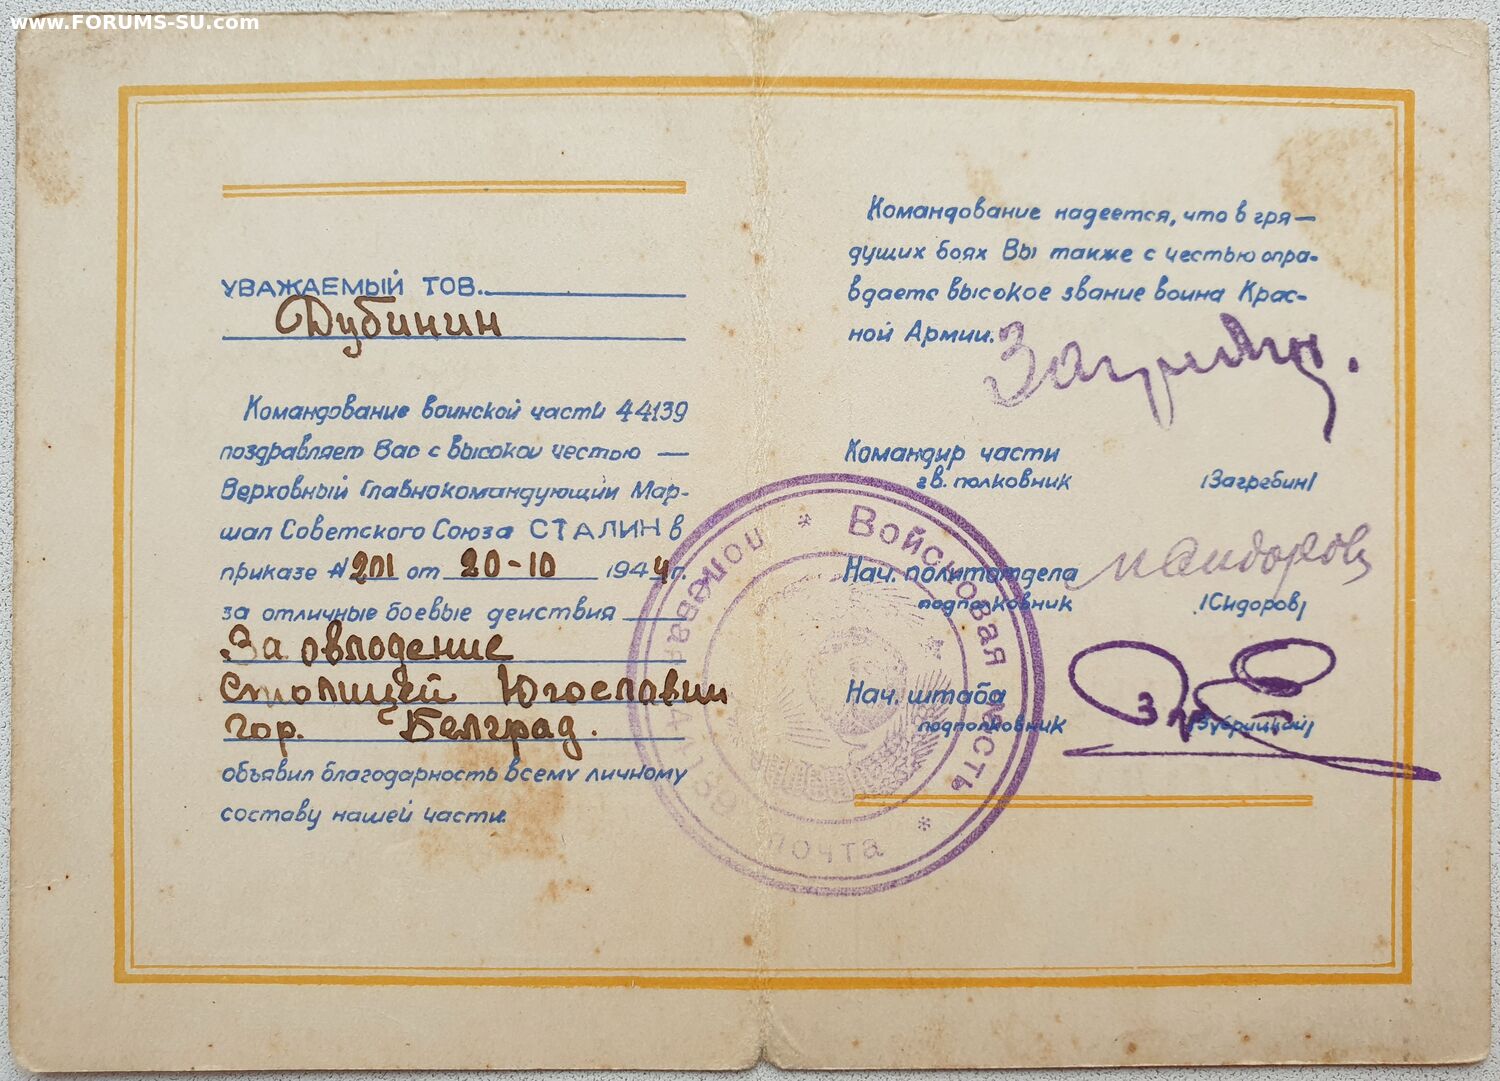 www.FORUMS-SU.com
УВАЖАЕМЫЙ ТОВ.
Дубинин
Командование воинской части 44139
поздравляет Вас с высокой честью —
Верховный Главнокомандующий Мар-
шал Советского Союза СТАЛИН в
приказе № 201 от 20-10 1944 г.
за отличные боевые действия
За овлодение
столицей Югославии
гор. Белград.
объявил благодарность всему личному
составу нашей части.
Командование надеется, что в гря—
дущих боях Вы также с честью опра-
вдаете высокое звание воина Крас-
ной Армии.
Загребин.
Командир части
гв. полковник /Загребин/
Нач. политотдела
подполковник /Сидоров/
Сидоров
Нач. штаба
подполковник /Зубрицкий/
* Войсковая часть *
полевая почта